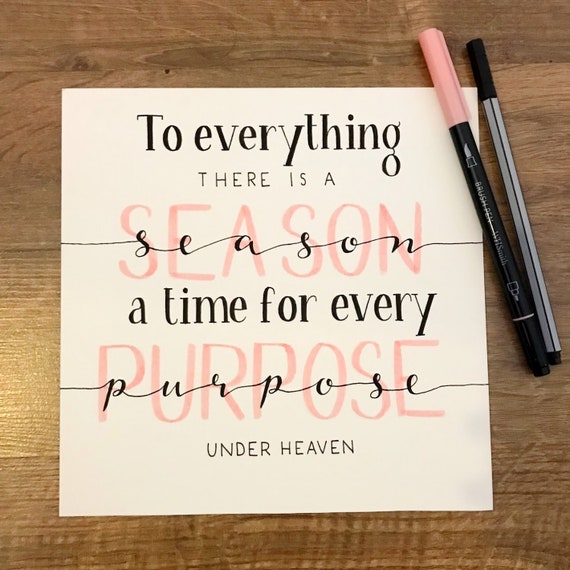 To everything
THERE IS A
SEASON
season
a time for every
PURPOSE
purpose
UNDER HEAVEN
BRUSH PEN